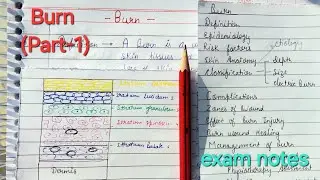 Burn
(Part 1)
- Burn -
→ A burn is a
skin tissues
Stratum lucidum
Stratum granulosum
Stratum
Stratum basale
Dermis
Burn
Definition
Epidemiology
Risk factors
etiology
Skin Anatomy
depth
Classification
Size
electric burn
Complications
Zones of wound
Effect of Burn Injury
Burn wound Healing
Management of burn
Physiotherapy
exam notes